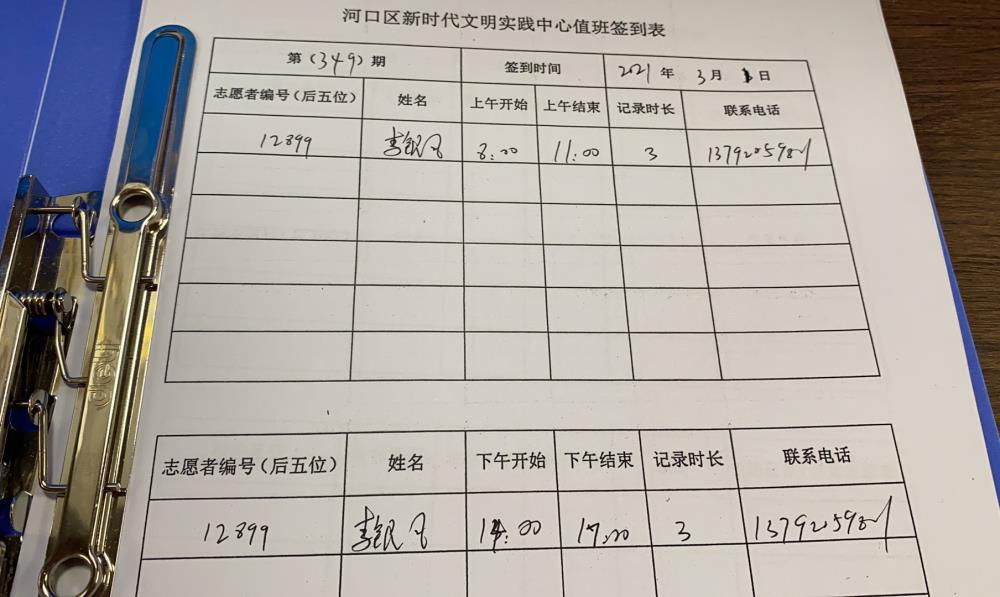 河口区新时代文明实践中心值班签到表
第(349)期 签到时间 2021年 3月 1日
志愿者编号(后五位) 姓名 上午开始 上午结束 记录时长 联系电话
12899 李银凡 8:00 11:00 3
志愿者编号(后五位) 姓名 下午开始 下午结束 记录时长 联系电话
12899 李银凡 14:00 17:00 3